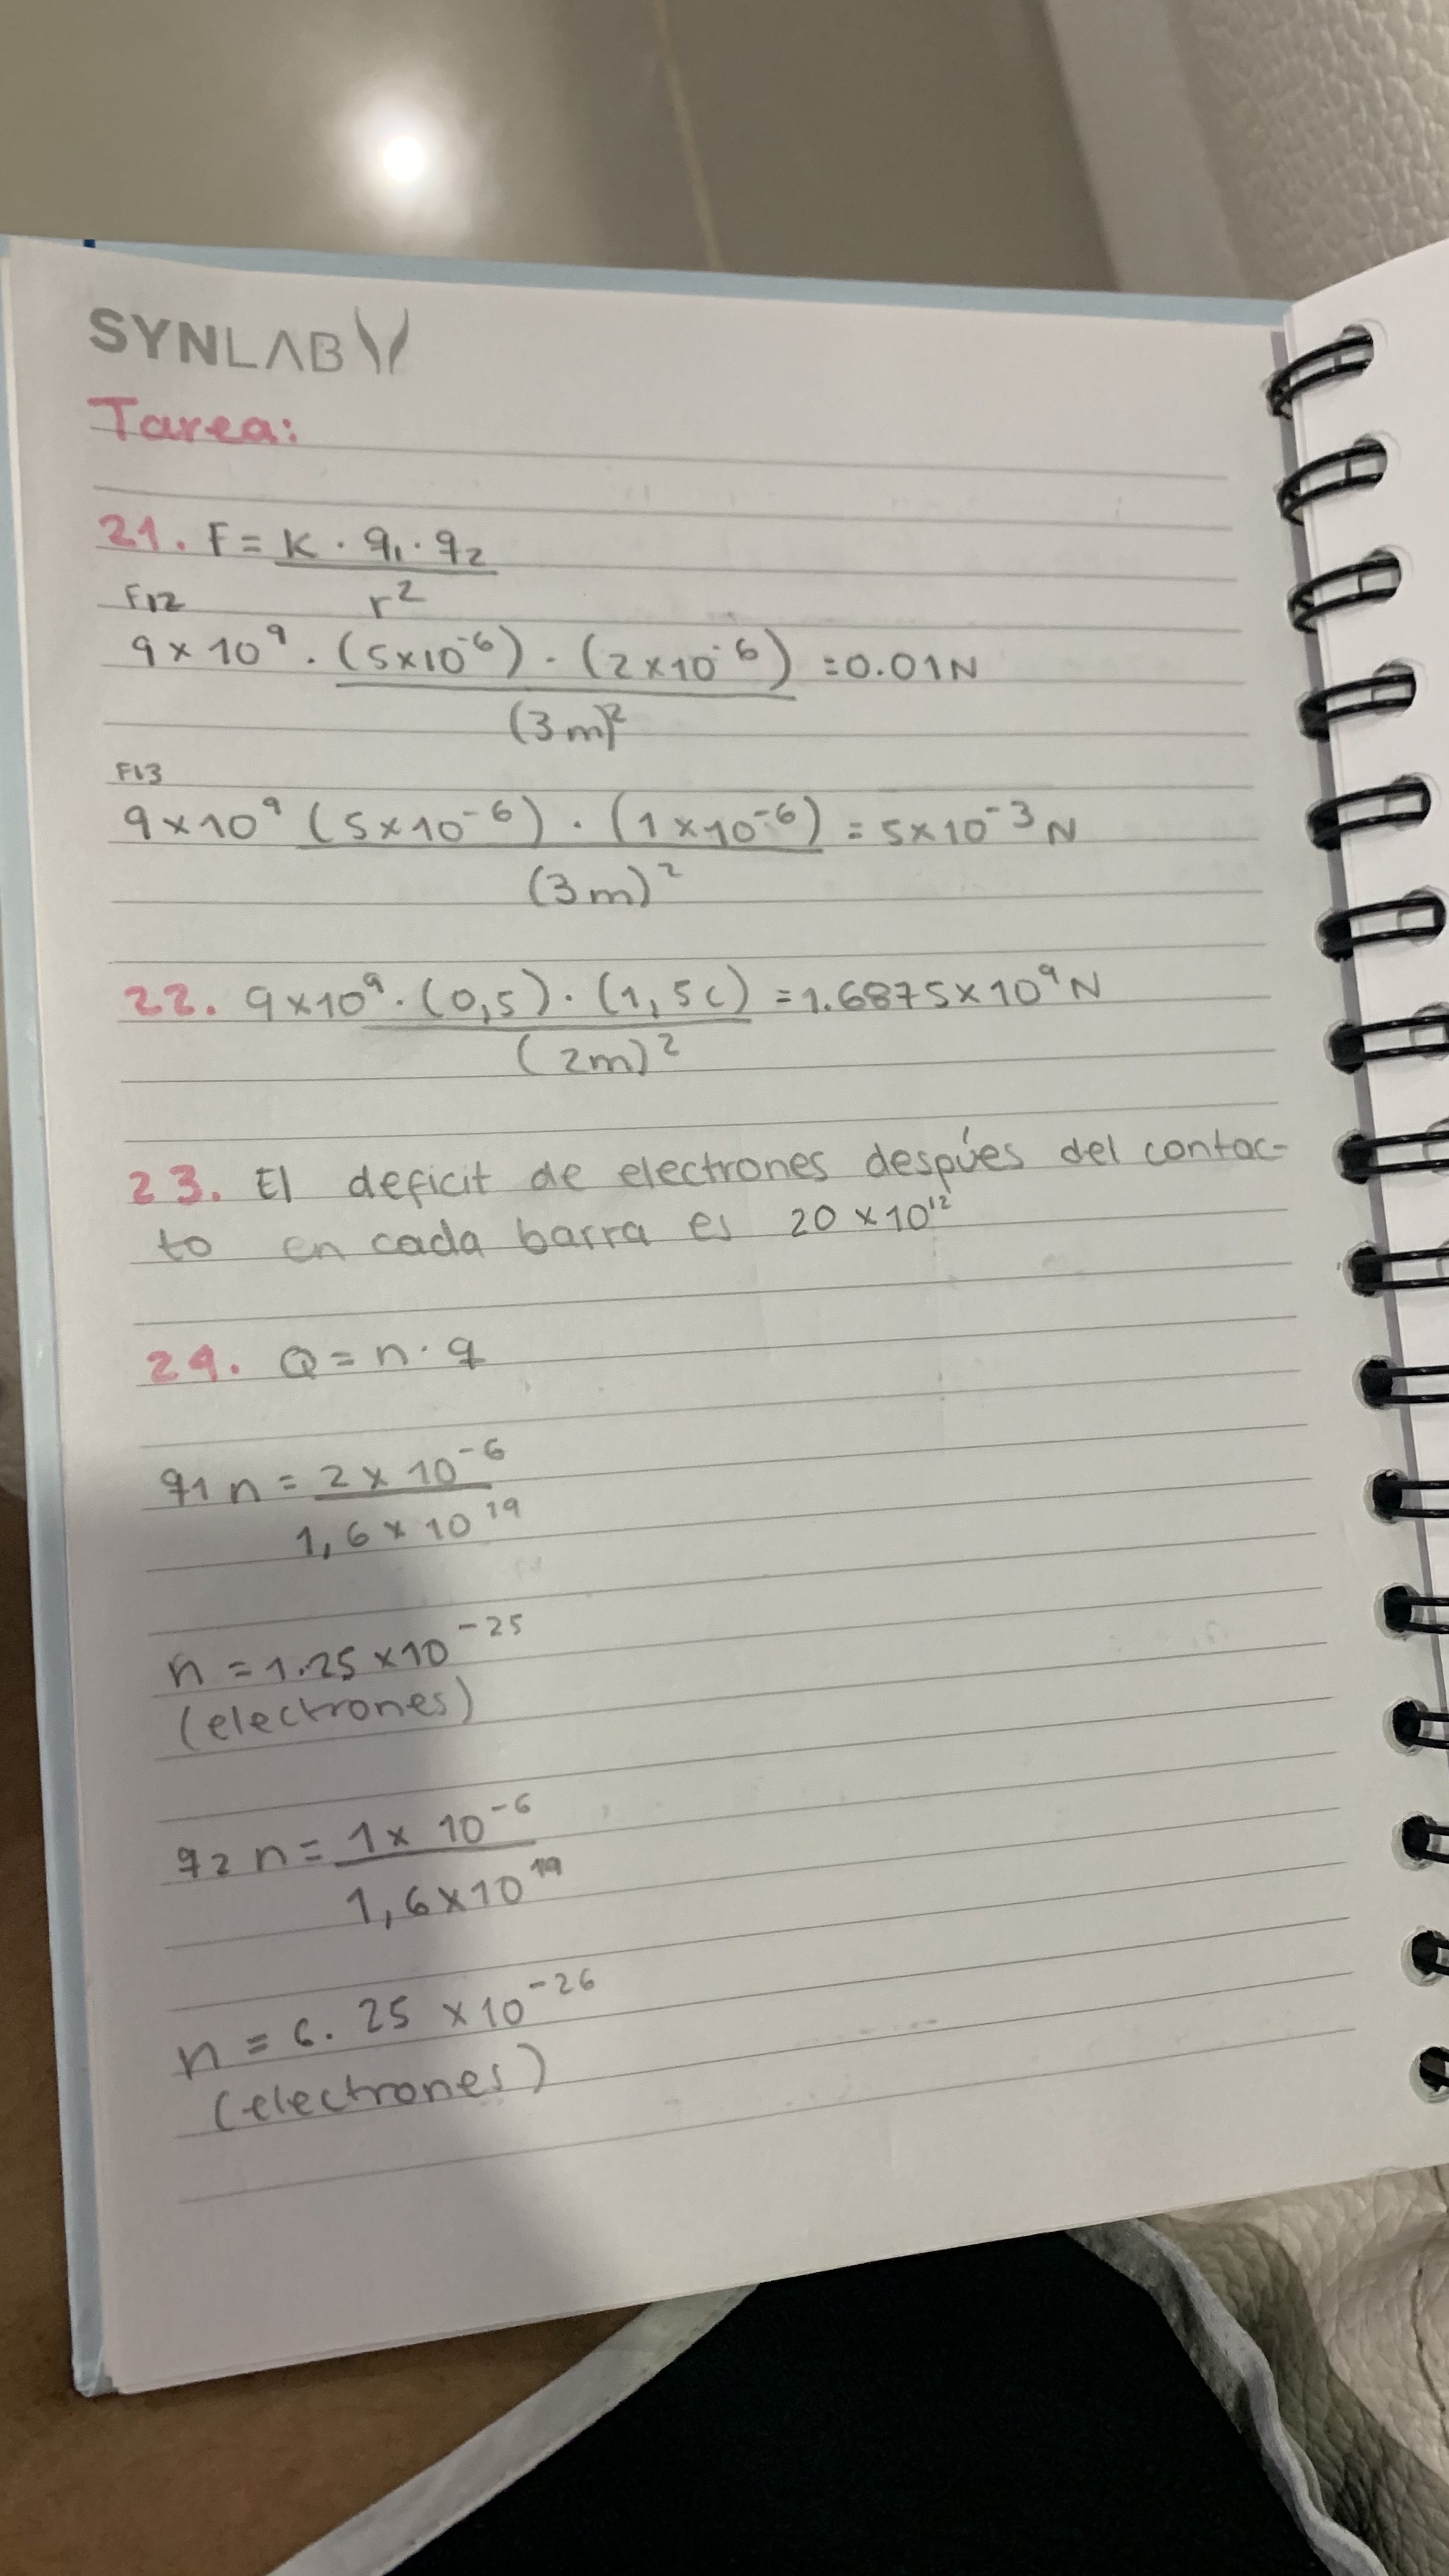 SYNLAB
Tarea:
21. F = K · q₁ · q₂
r²
F12
9 × 10⁹ · (5×10⁻⁶) · (2×10⁻⁶) = 0.01N
(3m)²
F13
9×10⁹ (5×10⁻⁶) · (1×10⁻⁶) = 5×10⁻³ N
(3m)²
22. 9×10⁹ · (0,5) · (1,5C) = 1.6875×10⁹ N
(2m)²
23. El deficit de electrones despúes del contac-
to en cada barra es 20 ×10¹²
24. Q = n · q
q1 n = 2 × 10⁻⁶
1,6 × 10¹⁹
n = 1.25 ×10⁻²⁵
(electrones)
q2 n = 1× 10⁻⁶
1,6×10¹⁹
n = 6. 25 ×10⁻²⁶
(electrones)